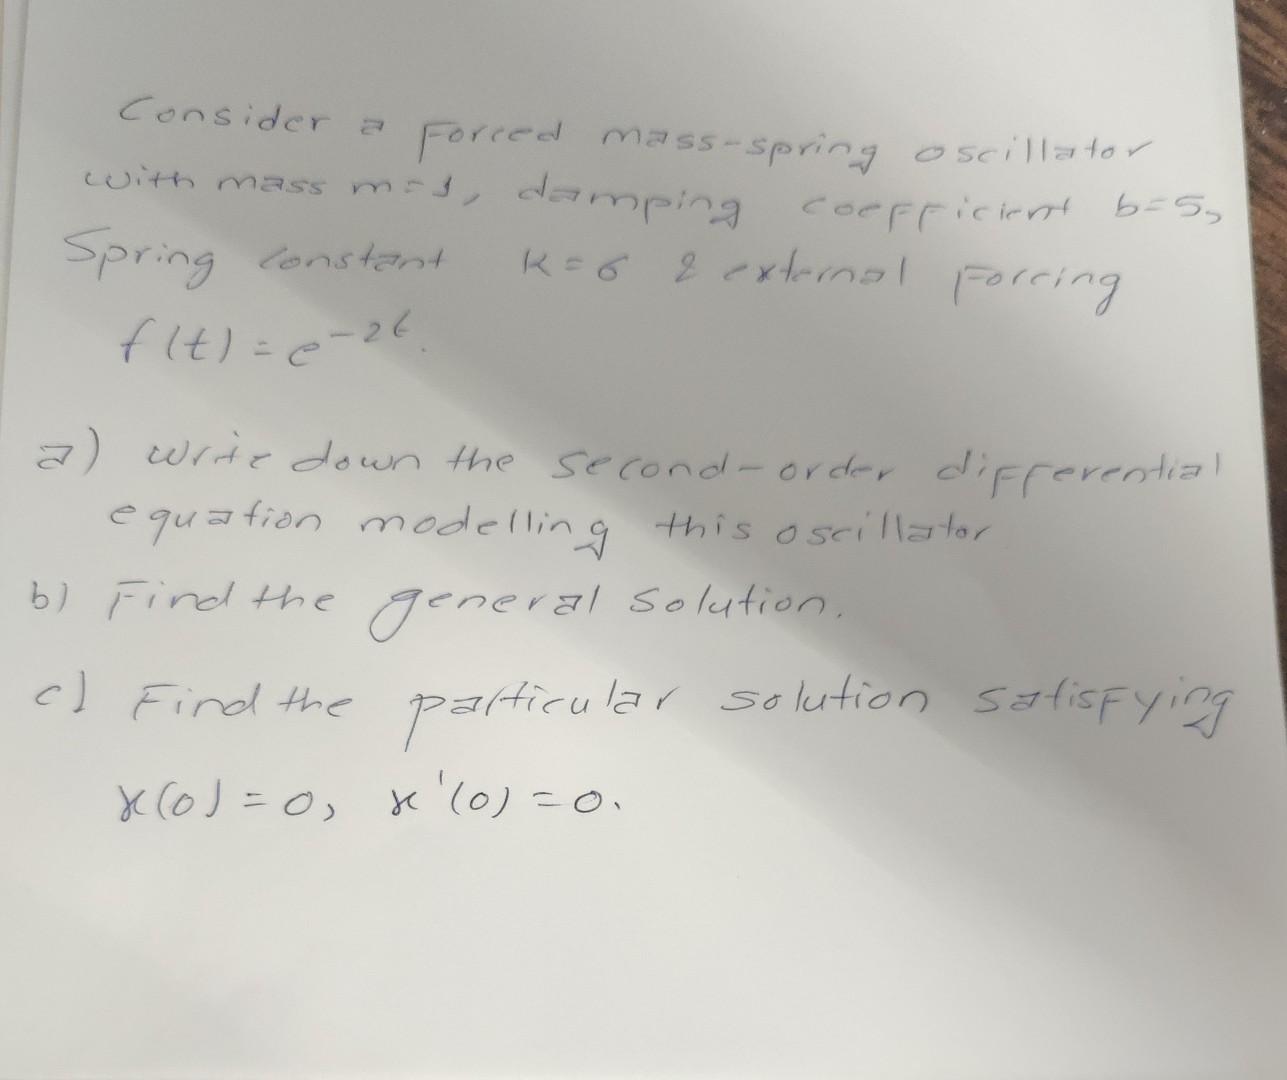 Consider a forced mass-spring oscillator
with mass m=1, damping coefficient b=5,
Spring constant k=6 & external forcing
f(t)=e^-2t.
a) write down the second-order differential
equation modelling this oscillator
b) Find the general solution.
c) Find the particular solution satisfying
x(0)=0, x'(0)=0.